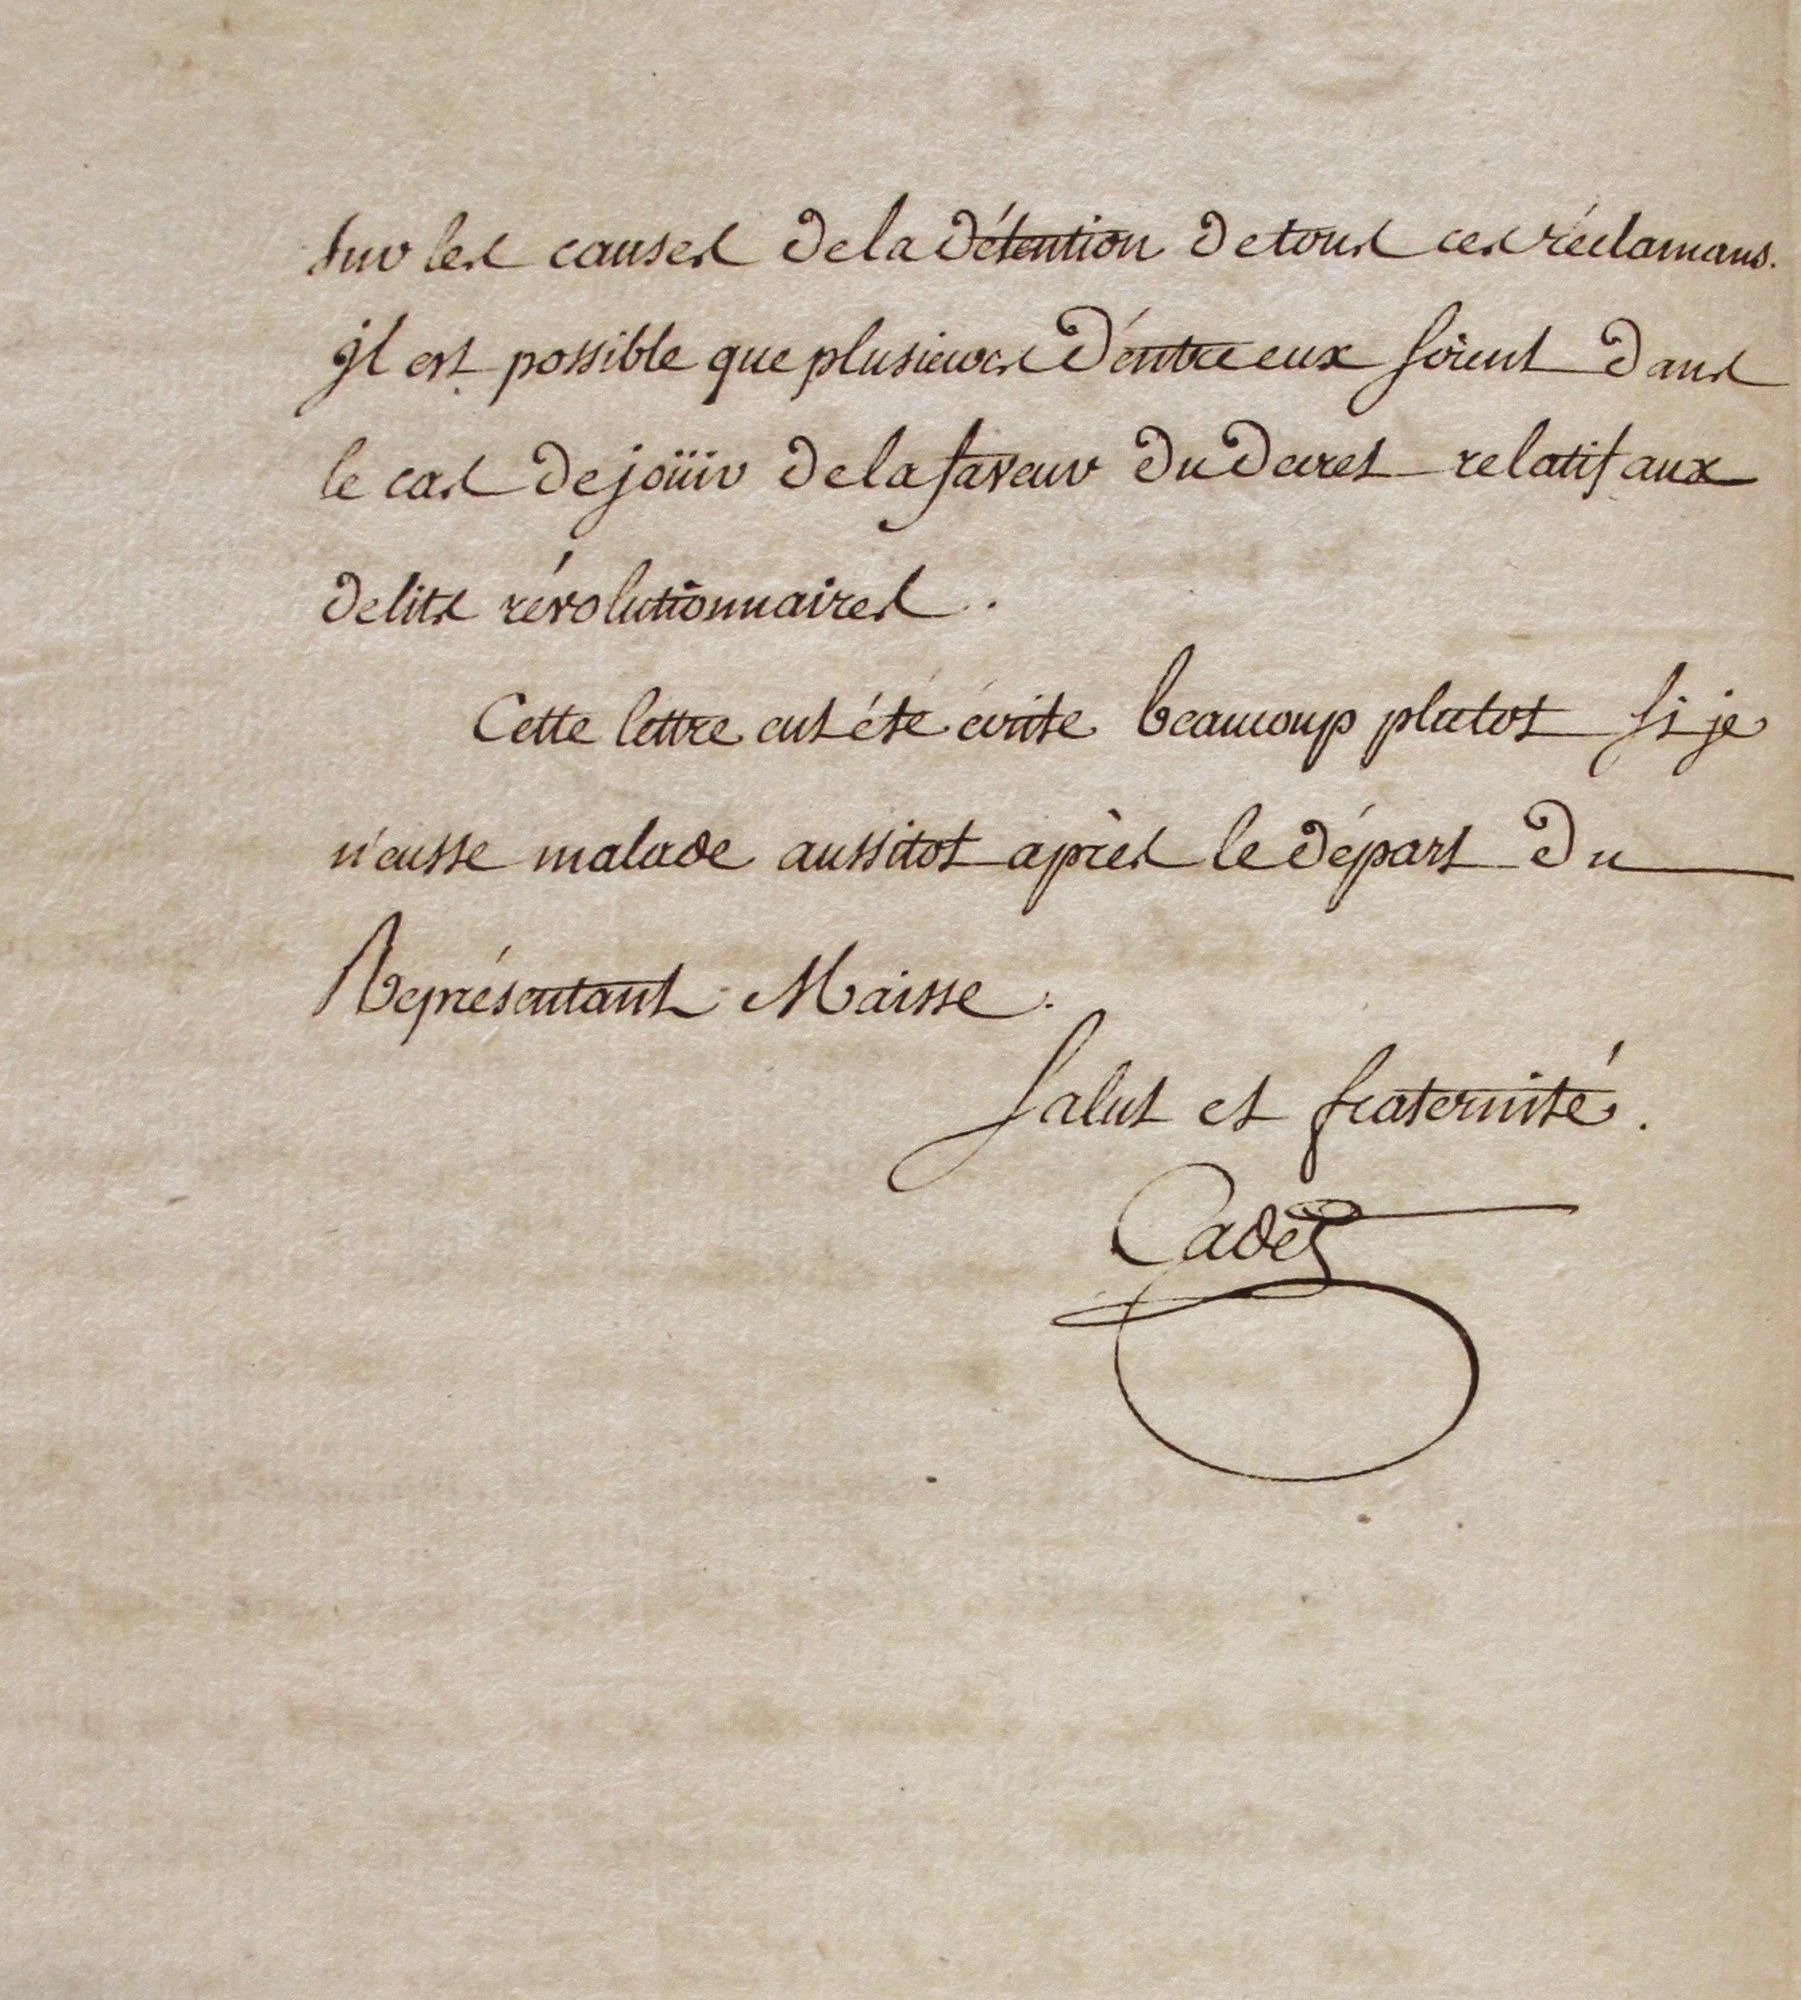 sur les causes de la détention de tous ces réclamans.
il est possible que plusieurs d'entre eux soient dans
le cas de joüir de la faveur du decret relatif aux
delits révolutionnaires.
Cette lettre eut été écrite beaucoup plutot si je
n'eusse malade aussitot après le départ du
Représentant Maisse.
Salut et fraternité.
Cadet